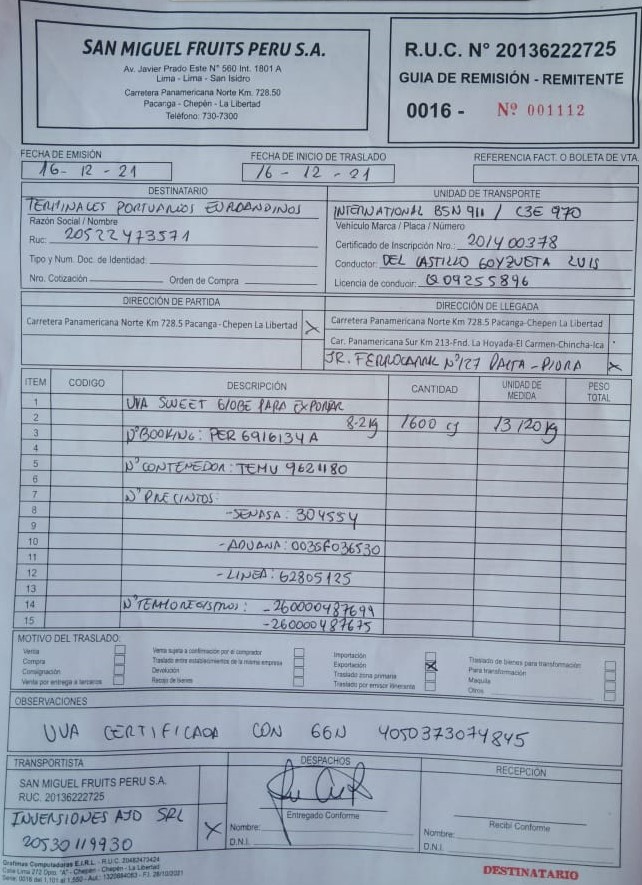 SAN MIGUEL FRUITS PERU S.A.
Av. Javier Prado Este N° 560 Int. 1801 A
Lima - Lima - San Isidro
Carretera Panamericana Norte Km. 728.50
Pacanga - Chepén - La Libertad
Teléfono: 730-7300
R.U.C. N° 20136222725
GUIA DE REMISIÓN - REMITENTE
0016 - Nº 001112
FECHA DE EMISIÓN
16 - 12 - 21
FECHA DE INICIO DE TRASLADO
16 - 12 - 21
REFERENCIA FACT. O BOLETA DE VTA.
DESTINATARIO
TERMINALES PORTUARIOS EUROANDINOS
Razón Social / Nombre
Ruc: 20522473571
Tipo y Num. Doc. de Identidad:
Nro. Cotización: Orden de Compra
UNIDAD DE TRANSPORTE
INTERNATIONAL BSN 911 / C3E 970
Vehículo Marca / Placa / Número
Certificado de Inscripción Nro.: 201400378
Conductor: DEL CASTILLO GOYZUETA LUIS
Licencia de conducir: Q09255896
DIRECCIÓN DE PARTIDA
Carretera Panamericana Norte Km 728.5 Pacanga-Chepen La Libertad X
DIRECCIÓN DE LLEGADA
Carretera Panamericana Norte Km 728.5 Pacanga-Chepen La Libertad
Car. Panamericana Sur Km 213-Fnd. La Hoyada-El Carmen-Chincha-Ica
JR. FERROCARRIL N°127 PAITA - PIURA X
ITEM CODIGO DESCRIPCIÓN CANTIDAD UNIDAD DE MEDIDA PESO TOTAL
1 UVA SWEET GLOBE PARA EXPORTAR
2 8.2 kg 1600 cj 13120 kg
3 N° BOOKING: PER 6916134 A
4
5 N° CONTENEDOR: TEMU 9621180
6
7 N° PRECINTOS:
8 - SENASA: 304554
9
10 - ADUANA: 003GF036530
11
12 - LINEA: 62805125
13
14 N° TERMOREGISTROS: - 260000487699
15 - 260000487675
MOTIVO DEL TRASLADO:
Venta
Compra
Consignación
Venta por entrega a terceros
Venta sujeta a confirmación por el comprador
Traslado entre establecimientos de la misma empresa
Devolución
Recojo de bienes
Importación
Exportación X
Traslado zona primaria
Traslado por emisor itinerante
Traslado de bienes para transformación
Para transformación
Maquila
Otros
OBSERVACIONES
UVA CERTIFICADA CON GGN 4050373074845
TRANSPORTISTA
SAN MIGUEL FRUITS PERU S.A.
RUC. 20136222725
INVERSIONES AJD SRL
20530119930 X
DESPACHOS
Entregado Conforme
Nombre:
D.N.I.
RECEPCIÓN
Recibí Conforme
Nombre:
D.N.I.
Grafimas Computadoras E.I.R.L. - R.U.C. 20482473424
Calle Lima 272 Dpto. "A" - Chepén - Chepén - La Libertad
Serie: 0016 del 1,101 al 1,550 - Aut.: 1320884083 - F.I. 28/10/2021
DESTINATARIO